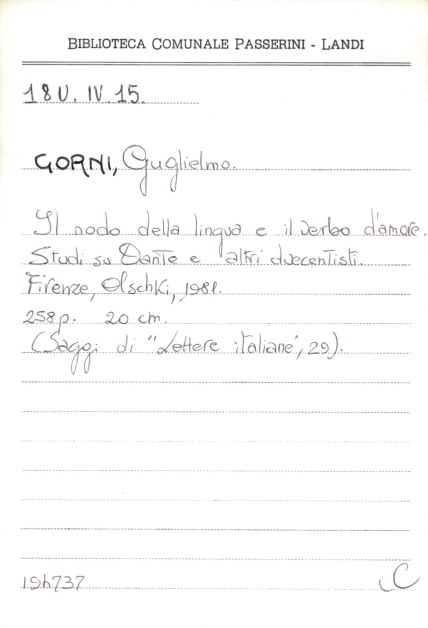 BIBLIOTECA COMUNALE PASSERINI - LANDI
18 U. IV. 15.
GORNI, Guglielmo.
Il nodo della lingua e il verbo d'amore.
Studi su Dante e altri duecentisti.
Firenze, Olschki, 1981.
258 p. 20 cm.
(Saggi di "Lettere italiane", 29).
194737
C